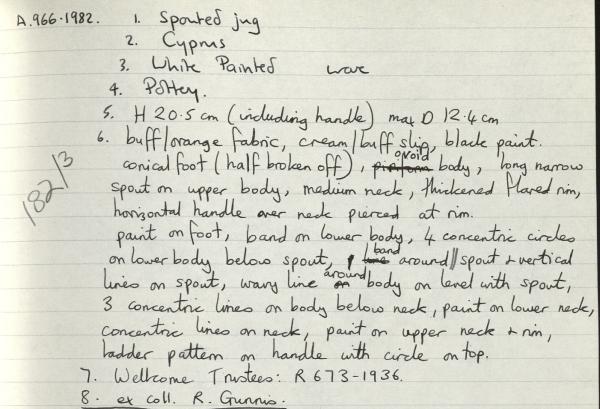 A.966-1982. 1. Spouted jug
2. Cyprus
3. White Painted ware
4. Pottery.
5. H 20.5 cm (including handle) max D 12.4 cm
6. buff/orange fabric, cream/buff slip, black paint.
conical foot (half broken off), ovoid body, long narrow
182/3
spout on upper body, medium neck, thickened flared rim,
horizontal handle over neck pierced at rim.
paint on foot, band on lower body, 4 concentric circles
on lower body below spout, 1 band around spout + vertical
lines on spout, wavy line around body on level with spout,
3 concentric lines on body below neck, paint on lower neck,
concentric lines on neck, paint on upper neck + rim,
ladder pattern on handle with circle on top.
7. Wellcome Trustees: R 673-1936.
8. ex coll. R. Gunnis.